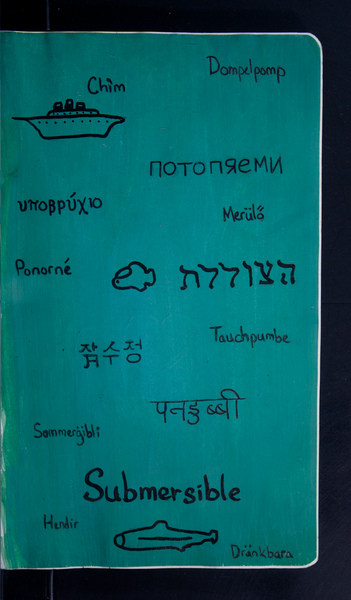 Dompelpomp
Chìm
потопяеми
υποβρύχιο
Merülő
Ponorné
הצוללת
Tauchpumbe
잠수정
पनडुब्बी
Sommerġibli
Submersible
Hendir
Dränkbara